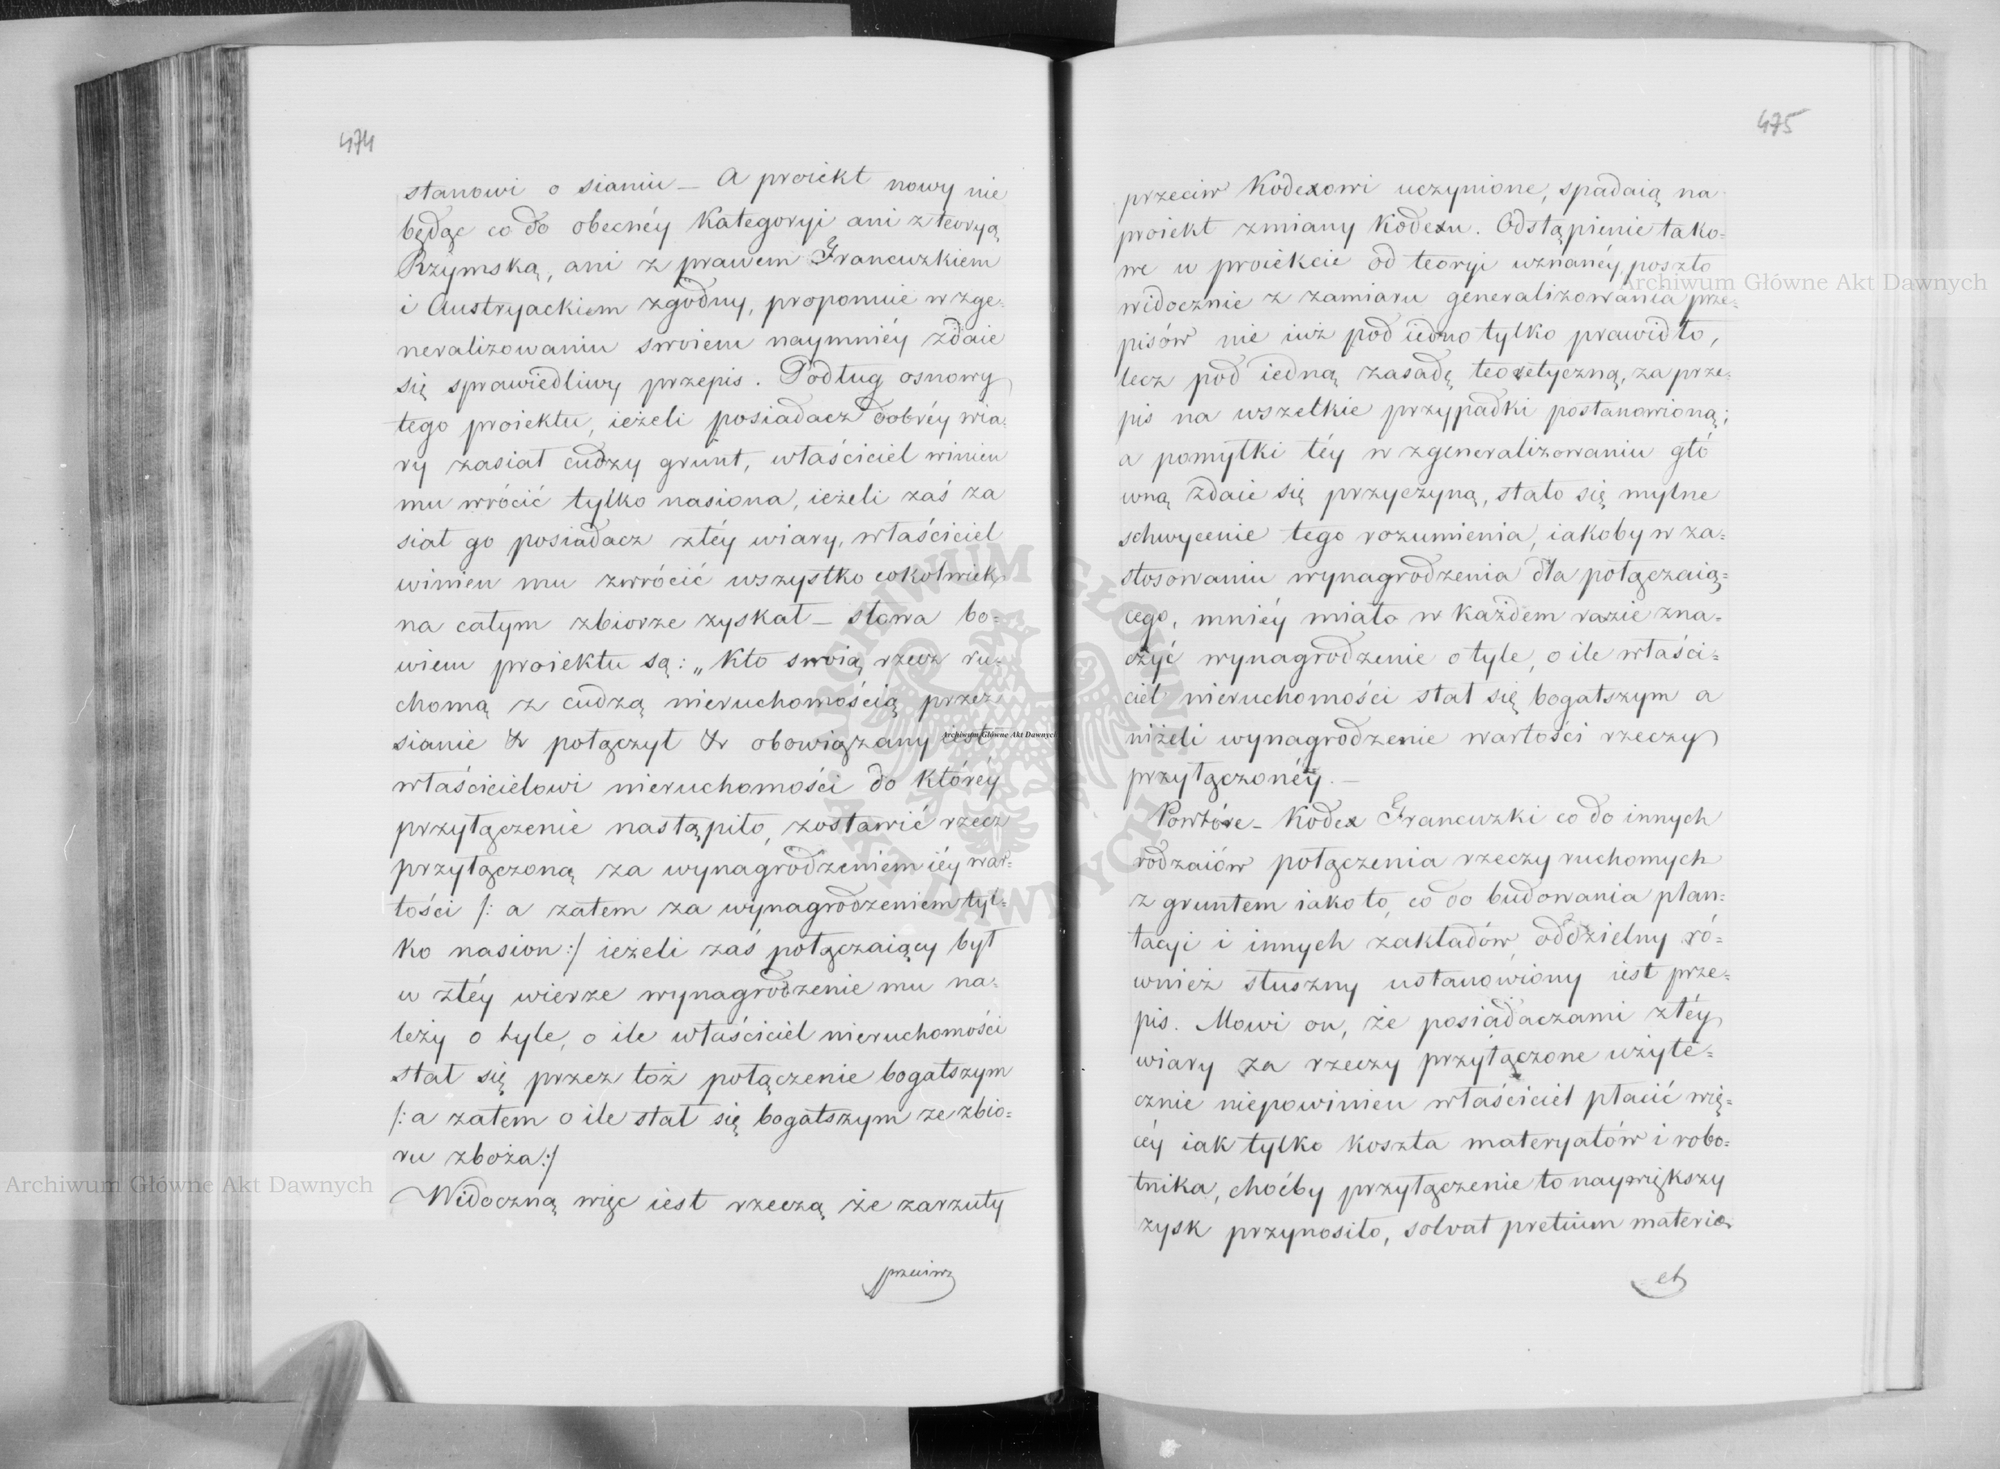 474
stanowi o sianiu — A proiekt nowy nie
będąc co do obecnéy Kategoryi ani z teoryą
Rzymską, ani z prawem Francuzkiem
i Austryackiem zgodny, proponuie w zge-
neralizowaniu swoiem naymniéy zdaie
się sprawiedliwy przepis. Podług osnowy
tego proiektu, ieżeli posiadacz dobréy wia-
ry zasiał cudzy grunt, właściciel winien
mu wrócić tylko nasiona, ieżeli zaś za
siał go posiadacz złéy wiary, właściciel
winien mu zwrócić wszystko cokolwiek
na całym zbiorze zyskał — słowa bo=
wiem proiektu są: „Kto swoią rzecz ru-
chomą z cudzą nieruchomością przez
sianie & połączył & obowiązany iest
właścicielowi nieruchomości do któréy
przyłączenie nastąpiło, zostawić rzecz
przyłączoną za wynagrodzeniem iéy war-
tości /: a zatem za wynagrodzeniem tyl-
ko nasion:/ ieżeli zaś połączaiący był
w złéy wierze wynagrodzenie mu na-
leży o tyle, o ile właściciel nieruchomości
stał się przez toż połączenie bogatszym
/: a zatem o ile stał się bogatszym ze zbio=
ru zboża:/
Widoczną więc iest rzeczą że zarzuty
przeciw
475
przeciw Kodexowi uczynione, spadaią na
proiekt zmiany Kodexu. Odstąpienie tako-
we w proiekcie od teoryi uznanéy, poszło
widocznie z zamiaru generalizowania prze-
pisów nie iuż pod iedno tylko prawidło,
lecz pod iedną zasadę teoretyczną, za prze-
pis na wszelkie przypadki postanowioną;
a pomyłki téy w zgeneralizowaniu głó
wną zdaie się przyczyną, stało się mylne
schwycenie tego rozumienia, iakoby w za-
stosowaniu wynagrodzenia dla połączaią=
cego, mniéy miało w każdem razie zna-
czyć wynagrodzenie o tyle, o ile właści=
ciel nieruchomości stał się bogatszym a
niżeli wynagrodzenie wartości rzeczy
przyłączonéy. —
Powtóre — Kodex Francuzki co do innych
rodzaiów połączenia rzeczy ruchomych
z gruntem iako to, co do budowania plan-
tacyi i innych zakładów, oddzielny ró-
wnież słuszny ustanowiony iest prze-
pis. Mowi on, że posiadaczami złéy
wiary za rzeczy przyłączone użyte=
cznie niepowinien właściciel płacić wię-
céy iak tylko koszta materyałów i robo-
tnika, choćby przyłączenie to naywiększy
zysk przynosiło, solvat pretium materiæ
et
Archiwum Główne Akt Dawnych
Archiwum Główne Akt Dawnych
Archiwum Główne Akt Dawnych
ARCHIWUM GŁÓWNE AKT DAWNYCH